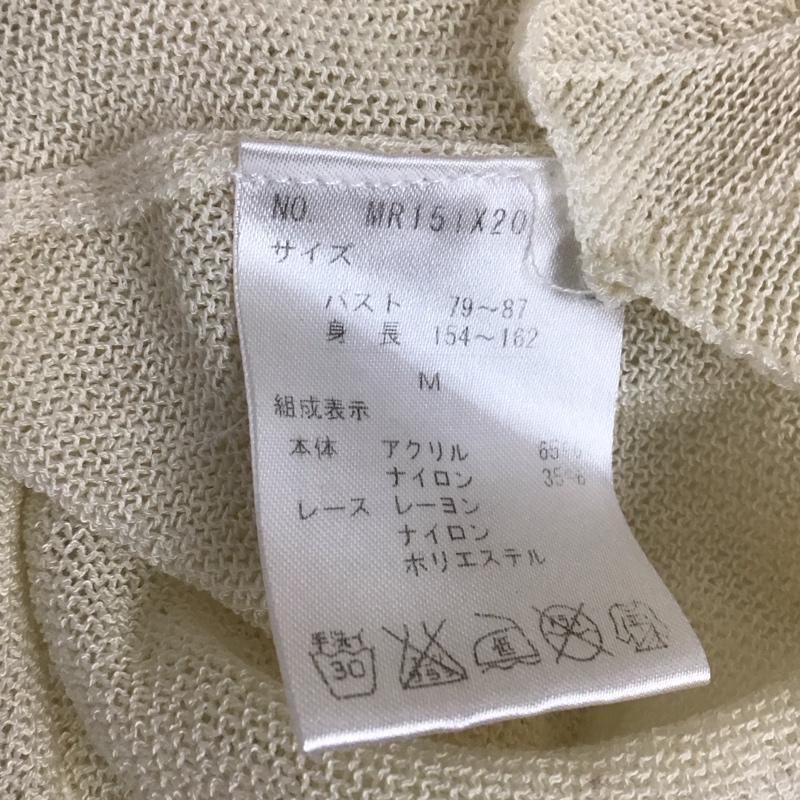 NO. MR151X20
サイズ
バスト 79〜87
身長 154〜162
M
組成表示
本体 アクリル 65%
ナイロン 35%
レース レーヨン
ナイロン
ポリエステル
手洗イ
30
低